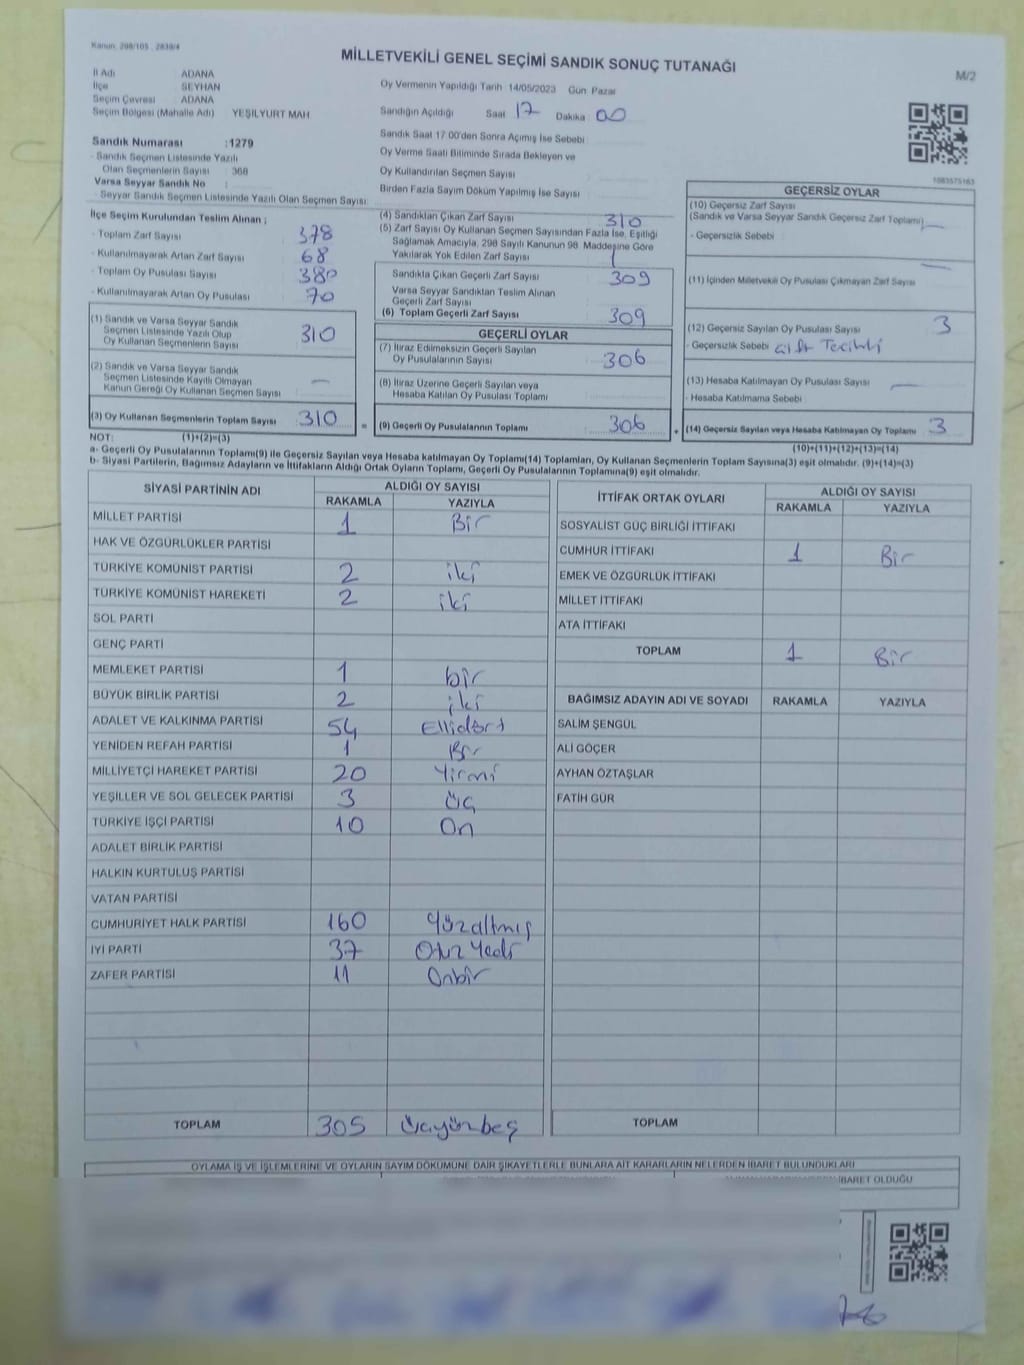 Kanun: 298/105 , 2839/4
MİLLETVEKİLİ GENEL SEÇİMİ SANDIK SONUÇ TUTANAĞI
M/2
İl Adı ADANA
İlçe SEYHAN
Seçim Çevresi ADANA
Seçim Bölgesi (Mahalle Adı) YEŞİLYURT MAH
Oy Vermenin Yapıldığı Tarih 14/05/2023 Gün Pazar
Sandığın Açıldığı Saat 17 Dakika 00
Sandık Saat 17:00'den Sonra Açımış İse Sebebi
Oy Verme Saati Bitiminde Sırada Bekleyen ve
Oy Kullandırılan Seçmen Sayısı
Birden Fazla Sayım Döküm Yapılmış İse Sayısı
Sandık Numarası :1279
- Sandık Seçmen Listesinde Yazılı
Olan Seçmenlerin Sayısı : 368
Varsa Seyyar Sandık No
- Seyyar Sandık Seçmen Listesinde Yazılı Olan Seçmen Sayısı
İlçe Seçim Kurulundan Teslim Alınan ;
- Toplam Zarf Sayısı 378
- Kullanılmayarak Artan Zarf Sayısı 68
- Toplam Oy Pusulası Sayısı 380
- Kullanılmayarak Artan Oy Pusulası 70
(1) Sandık ve Varsa Seyyar Sandık
Seçmen Listesinde Yazılı Olup
Oy Kullanan Seçmenlerin Sayısı 310
(2) Sandık ve Varsa Seyyar Sandık
Seçmen Listesinde Kayıtlı Olmayan
Kanun Gereği Oy Kullanan Seçmen Sayısı —
(3) Oy Kullanan Seçmenlerin Toplam Sayısı 310
(4) Sandıktan Çıkan Zarf Sayısı 310
(5) Zarf Sayısı Oy Kullanan Seçmen Sayısından Fazla İse, Eşitliği
Sağlamak Amacıyla, 298 Sayılı Kanunun 98. Maddesine Göre
Yakılarak Yok Edilen Zarf Sayısı 1
Sandıkta Çıkan Geçerli Zarf Sayısı 309
Varsa Seyyar Sandıktan Teslim Alınan
Geçerli Zarf Sayısı
(6) Toplam Geçerli Zarf Sayısı 309
GEÇERLİ OYLAR
(7) İtiraz Edilmeksizin Geçerli Sayılan
Oy Pusulalarının Sayısı 306
(8) İtiraz Üzerine Geçerli Sayılan veya
Hesaba Katılan Oy Pusulası Toplamı
= (9) Geçerli Oy Pusulalarının Toplamı 306
1083575163
GEÇERSİZ OYLAR
(10) Geçersiz Zarf Sayısı
(Sandık ve Varsa Seyyar Sandık Geçersiz Zarf Toplamı) —
- Geçersizlik Sebebi
—
(11) İçinden Milletvekili Oy Pusulası Çıkmayan Zarf Sayısı
(12) Geçersiz Sayılan Oy Pusulası Sayısı 3
- Geçersizlik Sebebi çift Tercihli
(13) Hesaba Katılmayan Oy Pusulası Sayısı —
- Hesaba Katılmama Sebebi
+ (14) Geçersiz Sayılan veya Hesaba Katılmayan Oy Toplamı 3
NOT: (1)+(2)=(3)
(10)+(11)+(12)+(13)=(14)
a- Geçerli Oy Pusulalarının Toplamı(9) ile Geçersiz Sayılan veya Hesaba katılmayan Oy Toplamı(14) Toplamları, Oy Kullanan Seçmenlerin Toplam Sayısına(3) eşit olmalıdır. (9)+(14)=(3)
b- Siyasi Partilerin, Bağımsız Adayların ve İttifakların Aldığı Ortak Oyların Toplamı, Geçerli Oy Pusulalarının Toplamına(9) eşit olmalıdır.
SİYASİ PARTİNİN ADI ALDIĞI OY SAYISI
RAKAMLA YAZIYLA
MİLLET PARTİSİ 1 Bir
HAK VE ÖZGÜRLÜKLER PARTİSİ
TÜRKİYE KOMÜNİST PARTİSİ 2 iki
TÜRKİYE KOMÜNİST HAREKETİ 2 iki
SOL PARTİ
GENÇ PARTİ
MEMLEKET PARTİSİ 1 bir
BÜYÜK BİRLİK PARTİSİ 2 iki
ADALET VE KALKINMA PARTİSİ 54 Ellidört
YENİDEN REFAH PARTİSİ 1 Bir
MİLLİYETÇİ HAREKET PARTİSİ 20 Yirmi
YEŞİLLER VE SOL GELECEK PARTİSİ 3 üç
TÜRKİYE İŞÇİ PARTİSİ 10 On
ADALET BİRLİK PARTİSİ
HALKIN KURTULUŞ PARTİSİ
VATAN PARTİSİ
CUMHURİYET HALK PARTİSİ 160 Yüzaltmış
İYİ PARTİ 37 Otuz Yedi
ZAFER PARTİSİ 11 Onbir
TOPLAM 305
İTTİFAK ORTAK OYLARI ALDIĞI OY SAYISI
RAKAMLA YAZIYLA
SOSYALİST GÜÇ BİRLİĞİ İTTİFAKI
CUMHUR İTTİFAKI 1 Bir
EMEK VE ÖZGÜRLÜK İTTİFAKI
MİLLET İTTİFAKI
ATA İTTİFAKI
TOPLAM 1 Bir
BAĞIMSIZ ADAYIN ADI VE SOYADI RAKAMLA YAZIYLA
SALİM ŞENGÜL
ALİ GÖÇER
AYHAN ÖZTAŞLAR
FATİH GÜR
TOPLAM
OYLAMA İŞ VE İŞLEMLERİNE VE OYLARIN SAYIM DÖKÜMÜNE DAİR ŞİKAYETLERLE BUNLARA AİT KARARLARIN NELERDEN İBARET BULUNDUKLARI
İBARET OLDUĞU